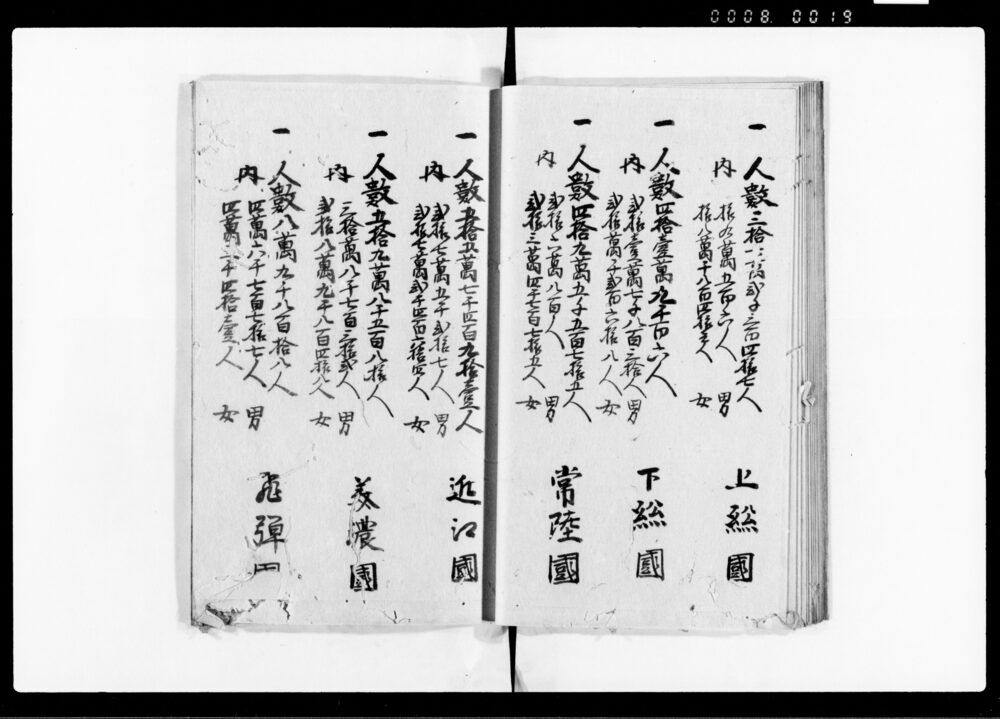 一 人數三拾七萬弐千三百四拾七人
内 拾九萬五百六人 男
拾八萬千八百四拾壱人 女
上総國
一 人數四拾壹萬九千百六人
内 弐拾壹萬七千八百三拾八人 男
弐拾萬千弐百六拾八人 女
下総國
一 人數四拾九萬五千五百七拾五人
内 弐拾六萬八百人 男
弐拾三萬四千七百七拾五人 女
常陸國
一 人數五拾五萬七千四百九拾壹人
内 弐拾七萬五千弐拾七人 男
弐拾八萬弐千四百六拾四人 女
近江國
一 人數五拾九萬八千五百八拾人
内 三拾萬八千七百三拾弐人 男
弐拾八萬九千八百四拾八人 女
美濃國
一 人數八萬九千八百拾八人
内 四萬六千七百七拾七人 男
四萬三千四拾壹人 女
飛彈
0008 0019